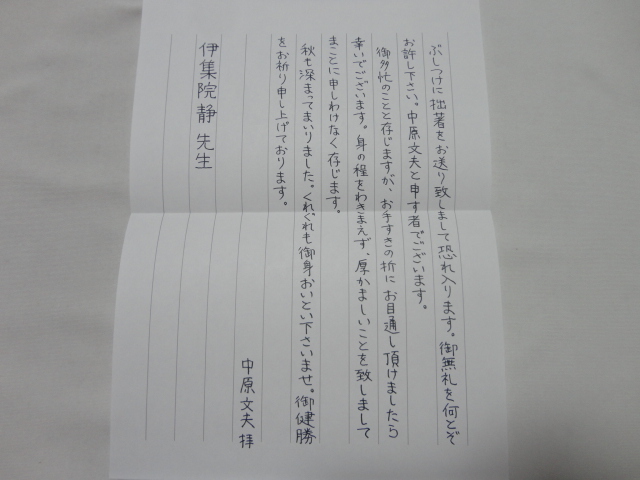 ぶしつけに拙著をお送り致しまして恐れ入ります。御無礼を何とぞ
お許し下さい。中原文夫と申す者でございます。
御多忙のことと存じますが、お手すきの折にお目通し頂けましたら
幸いでございます。身の程をわきまえず、厚かましいことを致しまして
まことに申しわけなく存じます。
秋も深まってまいりました。くれぐれも御身おいとい下さいませ。御健勝
をお祈り申し上げております。
中原文夫 拝
伊集院静先生